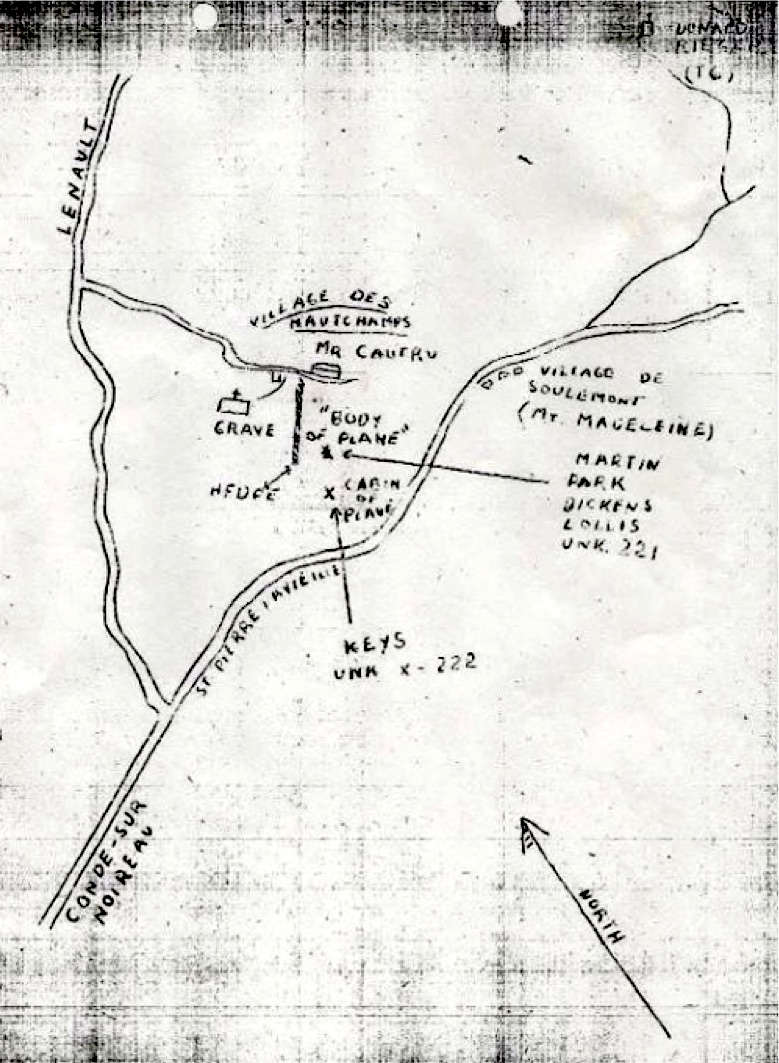 DONALD
(TG)
LENAULT
VILLAGE DES
HAUTCHAMPS
MR CAUTRU
GRAVE
"BODY
OF PLANE"
HEDGE
X CABIN
OF
PLANE
VILLAGE DE
SOULEMONT
(MT. MAGELEINE)
MARTIN
PARK
DICKENS
LOLLIS
UNK. 221
ST PIERRE
KEYS
UNK X-222
CONDE-SUR
NOIREAU
NORTH